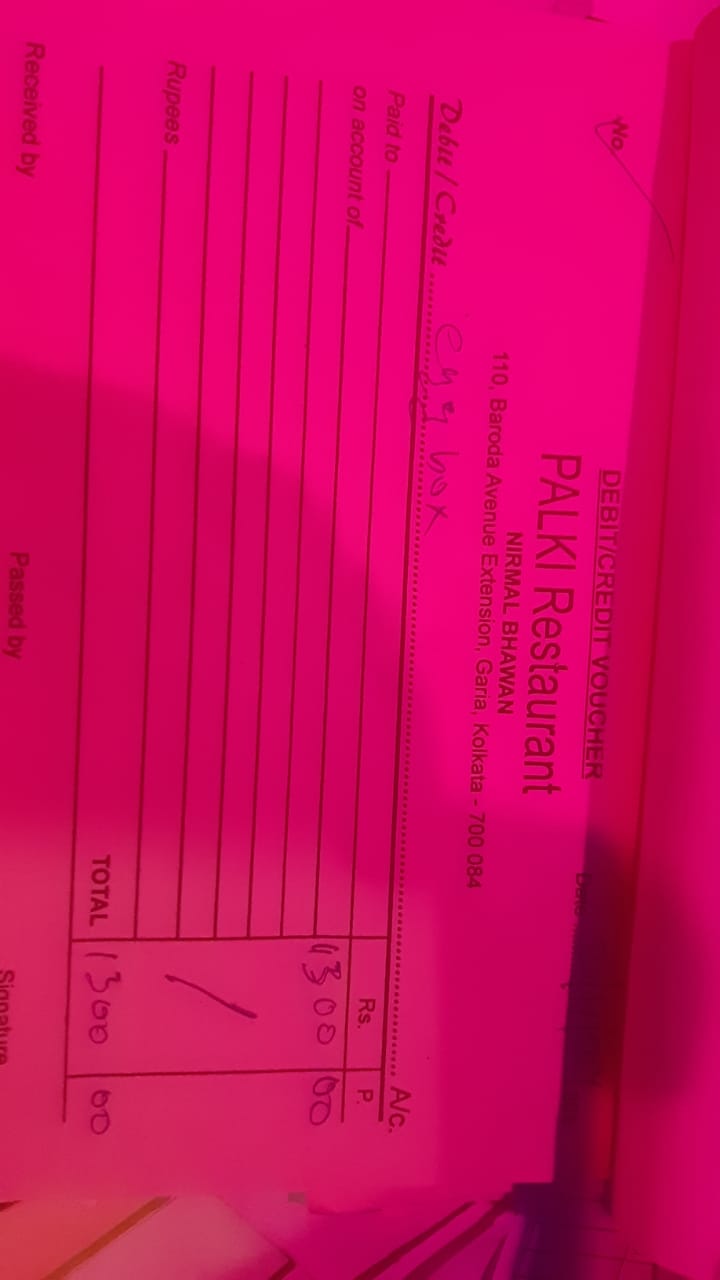 DEBIT/CREDIT VOUCHER
No.
Date
PALKI Restaurant
NIRMAL BHAWAN
110, Baroda Avenue Extension, Garia, Kolkata - 700 084
Debit / Credit box A/c.
Paid to
Rs. P.
on account of
1300 00
Rupees
TOTAL 1300 00
Received by Passed by Signature